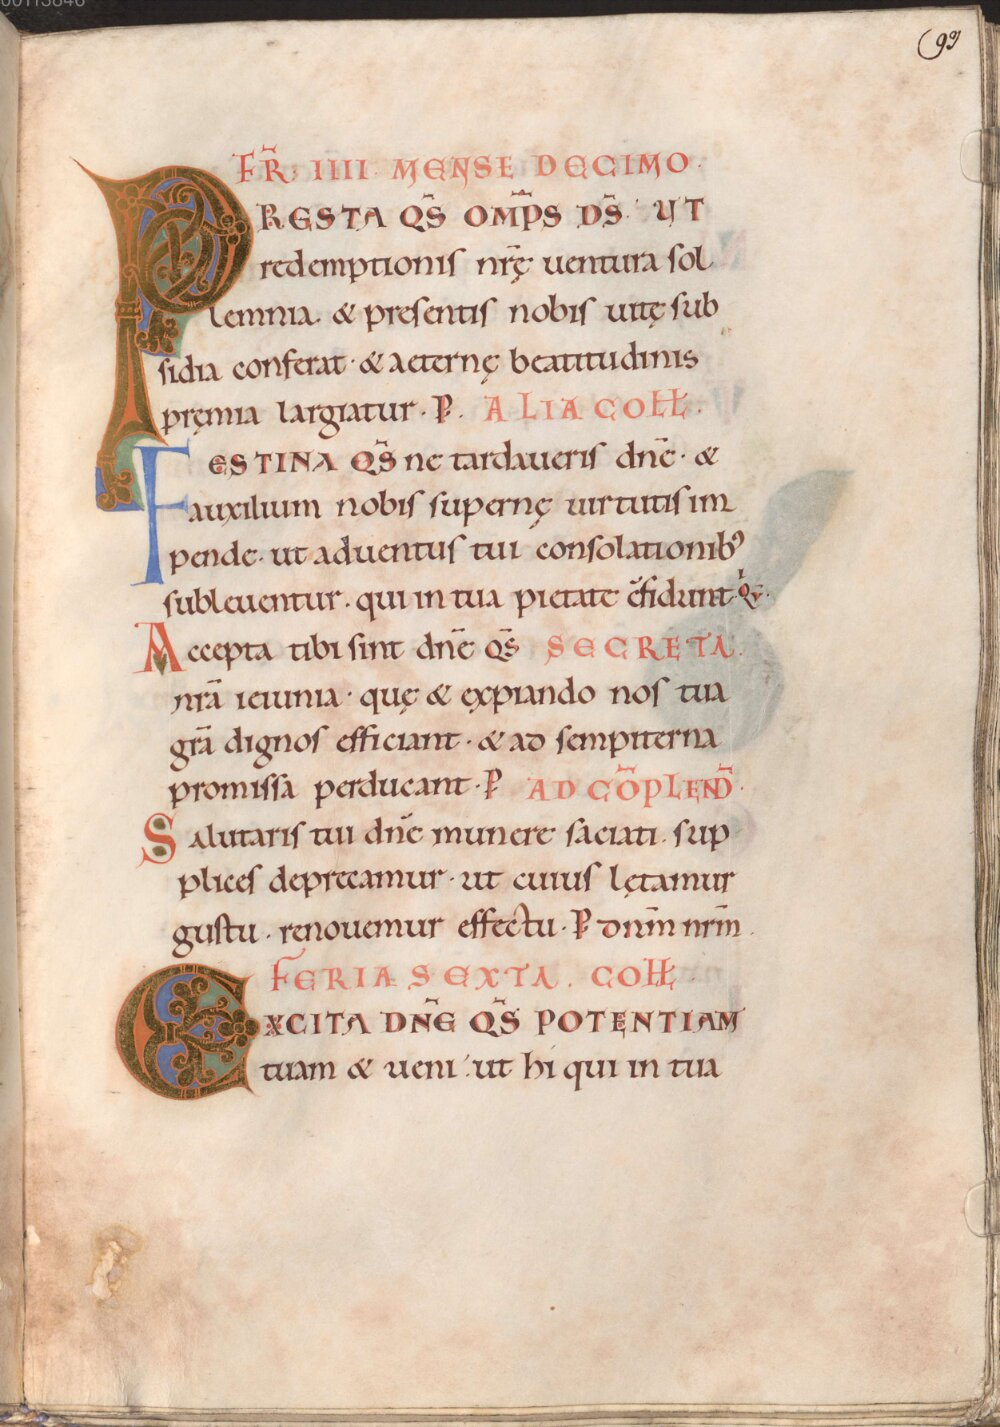 93
FR̄ IIII MENSE DECIMO.
PRESTA QS̄ OMP̄S DS̄· UT
redemptionis nr̄ę uentura sol
lemnia. & presentis nobis uitę sub
sidia conferat· & aeternę beatitudinis
pręmia largiatur· P. ALIA COLL̄.
FESTINA QS̄ ne tardaueris dn̄e· &
auxilium nobis supernę uirtutis im
pende· ut aduentus tui consolationibꝰ
subleuentur. qui in tua pietate c̄fidunt· Qͥ V·
Accepta tibi sint dn̄e qs̄ SECRETA.
nr̄a ieiunia· quę & expiando nos tua
gr̄a dignos efficiant· & ad sempiterna
promissa perducant· P AD CŌPLEND̄·
Salutaris tui dn̄e munere saciati. sup
plices deprecamur· ut cuius lętamur
gustu. renouemur effectu. P dnm̄ nrm̄.
FERIA SEXTA. COLL̄
EXCITA DN̄E QS̄ POTENTIAM
tuam & ueni· ut hi qui in tua